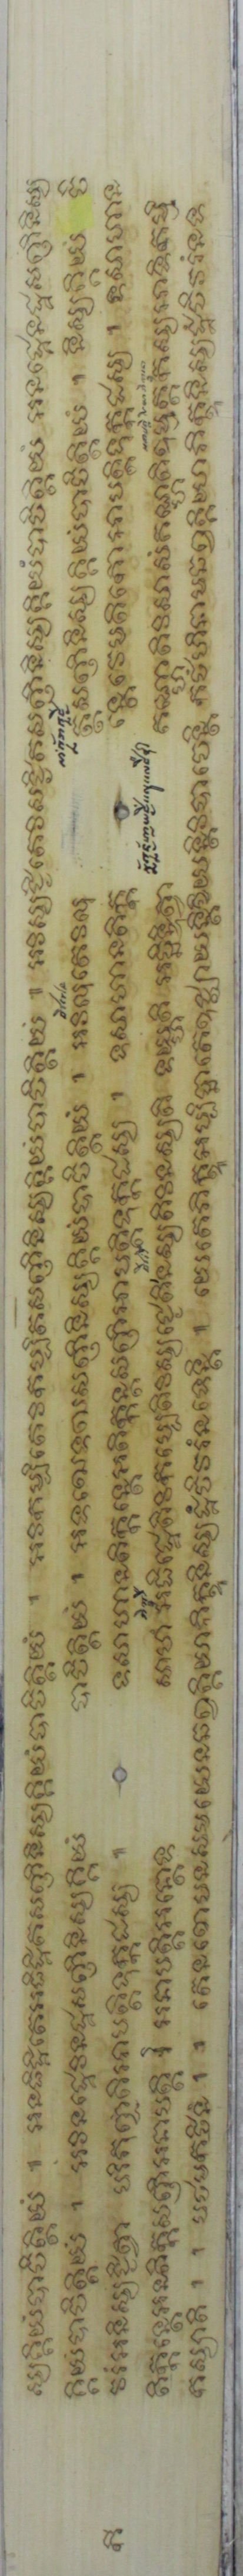 ស្សគ្គិយំបាចិត្តិយំ ។ អនធិដ្ឋិតេអធិដ្ឋិតសញ្ញីនិស្សគ្គិយំបាចិត្តិយំ ។ អវិកប្បិតេវិកប្បិតសញ្ញីនិស្សគ្គិយំបាចិត្តិយំ ។ អវិស្សជ្ជិតេវិសជ្ជិតសញ្ញីនិស្សគ្គិយំបាចិត្តិយំ អនដ្ឋេនដ្ឋសញ្ញីនិស្ស
គ្គិយំបាចិត្តិយំ ។ អវិនដ្ឋេវិនដ្ឋសញ្ញីនិស្សគ្គិយំ បាចិត្តិយំ ។ អទឌ្ឍេទឌ្ឍសញ្ញីនិស្សគ្គិយំបាចិត្តិយំ ។ អវិលុត្តេវិលុ ត្តសញ្ញីនិស្សគ្គិយំបាចិត្តិយំ ។ និស្សគ្គិយំ ចី
វរំអនិស្សជ្ជិត្វា បរិភុញ្ជតិអាបត្តិទុក្កដស្ស ។ ទសាហានតិក្កន្តេអតិក្កន្តសញ្ញីអាបត្តិទុក្កដស្ស ។ ទសាហានតិក្ក ន្តេវេមតិកោអាបត្តិទុក្កដស្ស ។ ទសាហាន
តិក្កន្តេអនតិក្កសញ្ញីអនាបត្តិ ។ អនាបត្តិអន្តោទ សាហំ អធិដ្ឋេតិវិកប្បេតិវិស្សជ្ជេតិនស្សតិវិនស្សតិ ឌយ្ហតិ អច្ឆិន្ទិត្វា គណ្ហតិវិសាសំគណ្ហតិឧម្មត្តកស្សអាទិកម្មិ
កស្សាតិ ។ ។ បឋមកឋិនំ ។ ។ តេនខោបនសមយេនឆព្វគ្គិយាភិក្ខូនិស្សដ្ឋំចីវរំនទេន្តិ ។ យេតេភិក្ខូអប្បិច្ឆាតេឧជ្ឈាយន្តិខិយន្តិវិបាចេន្តិ កថំហិនាមឆព្វគ្គិយាភិក្ខូនិស្សដ្ឋំចីវរំនទ